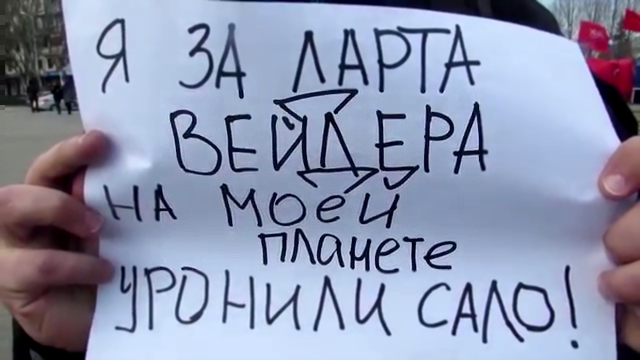 Я ЗА ЛАРТА
ВЕЙДЕРА
НА МОЕЙ
ПЛАНЕТЕ
УРОНИЛИ САЛО!